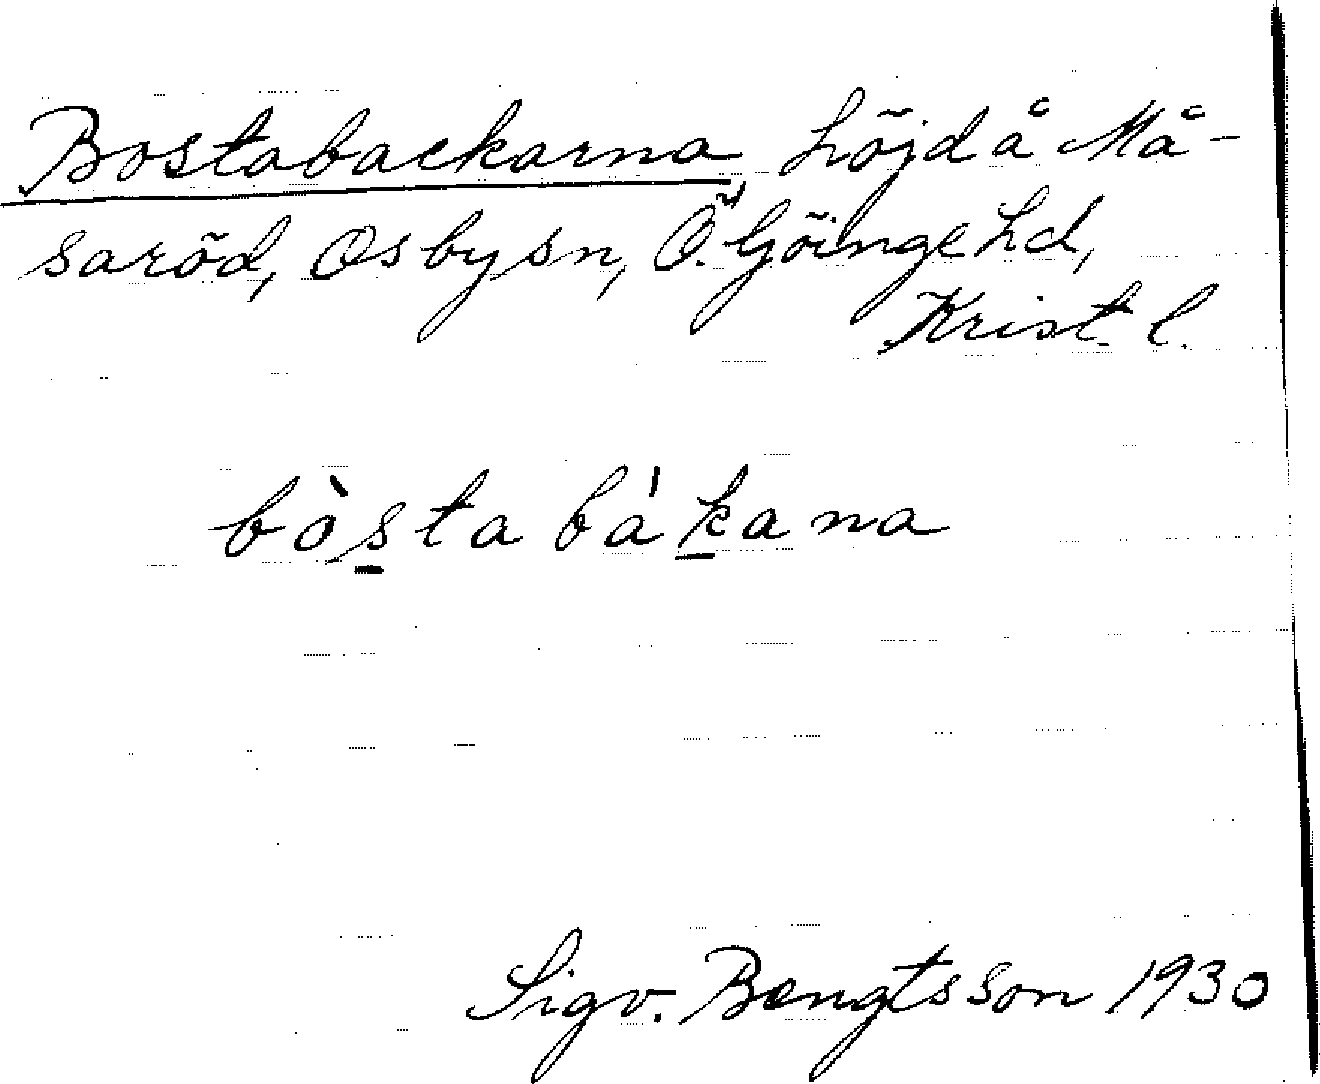 Bostabackarna, höjd å Må-
saröd, Osby sn, Ö. Göinge hd,
Krist. l.
bòs̲ta bák̲ana
Sigv. Bengtsson 1930